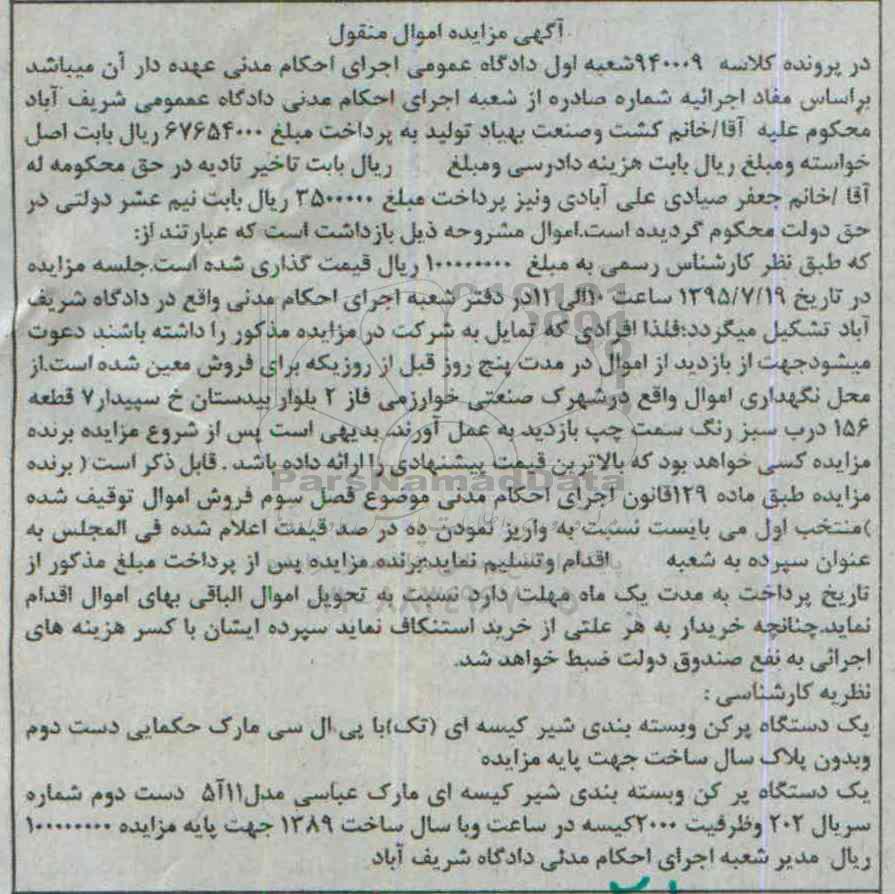 آگهی مزایده اموال منقول
در پرونده کلاسه ۹۴۰۰۰۹شعبه اول دادگاه عمومی اجرای احکام مدنی عهده دار آن میباشد
براساس مفاد اجرائیه شماره صادره از شعبه اجرای احکام مدنی دادگاه عممومی شریف آباد
محکوم علیه آقا/خانم کشت وصنعت بهیاد تولید به پرداخت مبلغ ۶۷۶۵۴۰۰۰ ریال بابت اصل
خواسته ومبلغ ریال بابت هزینه دادرسی ومبلغ ریال بابت تاخیر تادیه در حق محکومه له
آقا /خانم جعفر صیادی علی آبادی ونیز پرداخت مبلغ ۳۵۰۰۰۰۰ ریال بابت نیم عشر دولتی در
حق دولت محکوم گردیده است.اموال مشروحه ذیل بازداشت است که عبارتند از:
که طبق نظر کارشناس رسمی به مبلغ ۱۰۰۰۰۰۰۰۰ ریال قیمت گذاری شده است.جلسه مزایده
در تاریخ ۱۳۹۵/۷/۱۹ ساعت ۱۰الی ۱۱در دفتر شعبه اجرای احکام مدنی واقع در دادگاه شریف
آباد تشکیل میگردد؛فلذا افرادی که تمایل به شرکت در مزایده مذکور را داشته باشند دعوت
میشودجهت از بازدید از اموال در مدت پنج روز قبل از روزیکه برای فروش معین شده است.از
محل نگهداری اموال واقع درشهرک صنعتی خوارزمی فاز ۲ بلوار بیدستان خ سپیدار۷ قطعه
۱۵۶ درب سبز رنگ سمت چپ بازدید به عمل آورند. بدیهی است پس از شروع مزایده برنده
مزایده کسی خواهد بود که بالاترین قیمت پیشنهادی را ارائه داده باشد . قابل ذکر است( برنده
مزایده طبق ماده ۱۲۹قانون اجرای احکام مدنی موضوع فصل سوم فروش اموال توقیف شده
)منتخب اول می بایست نسبت به واریز نمودن ده در صد قیمت اعلام شده فی المجلس به
عنوان سپرده به شعبه اقدام وتسلیم نماید؛برنده مزایده پس از پرداخت مبلغ مذکور از
تاریخ پرداخت به مدت یک ماه مهلت دارد نسبت به تحویل اموال الباقی بهای اموال اقدام
نماید.چنانچه خریدار به هر علتی از خرید استنکاف نماید سپرده ایشان با کسر هزینه های
اجرائی به نفع صندوق دولت ضبط خواهد شد.
نظریه کارشناسی :
یک دستگاه پرکن وبسته بندی شیر کیسه ای (تک)با پی.ال سی مارک حکمایی دست دوم
وبدون پلاک سال ساخت جهت پایه مزایده
یک دستگاه پر کن وبسته بندی شیر کیسه ای مارک عباسی مدل۱۱آ۵ دست دوم شماره
سریال ۲۰۲ وظرفیت ۲۰۰۰کیسه در ساعت وبا سال ساخت ۱۳۸۹ جهت پایه مزایده ۱۰۰۰۰۰۰۰۰
ریال مدیر شعبه اجرای احکام مدنی دادگاه شریف آباد
ParsNamadData